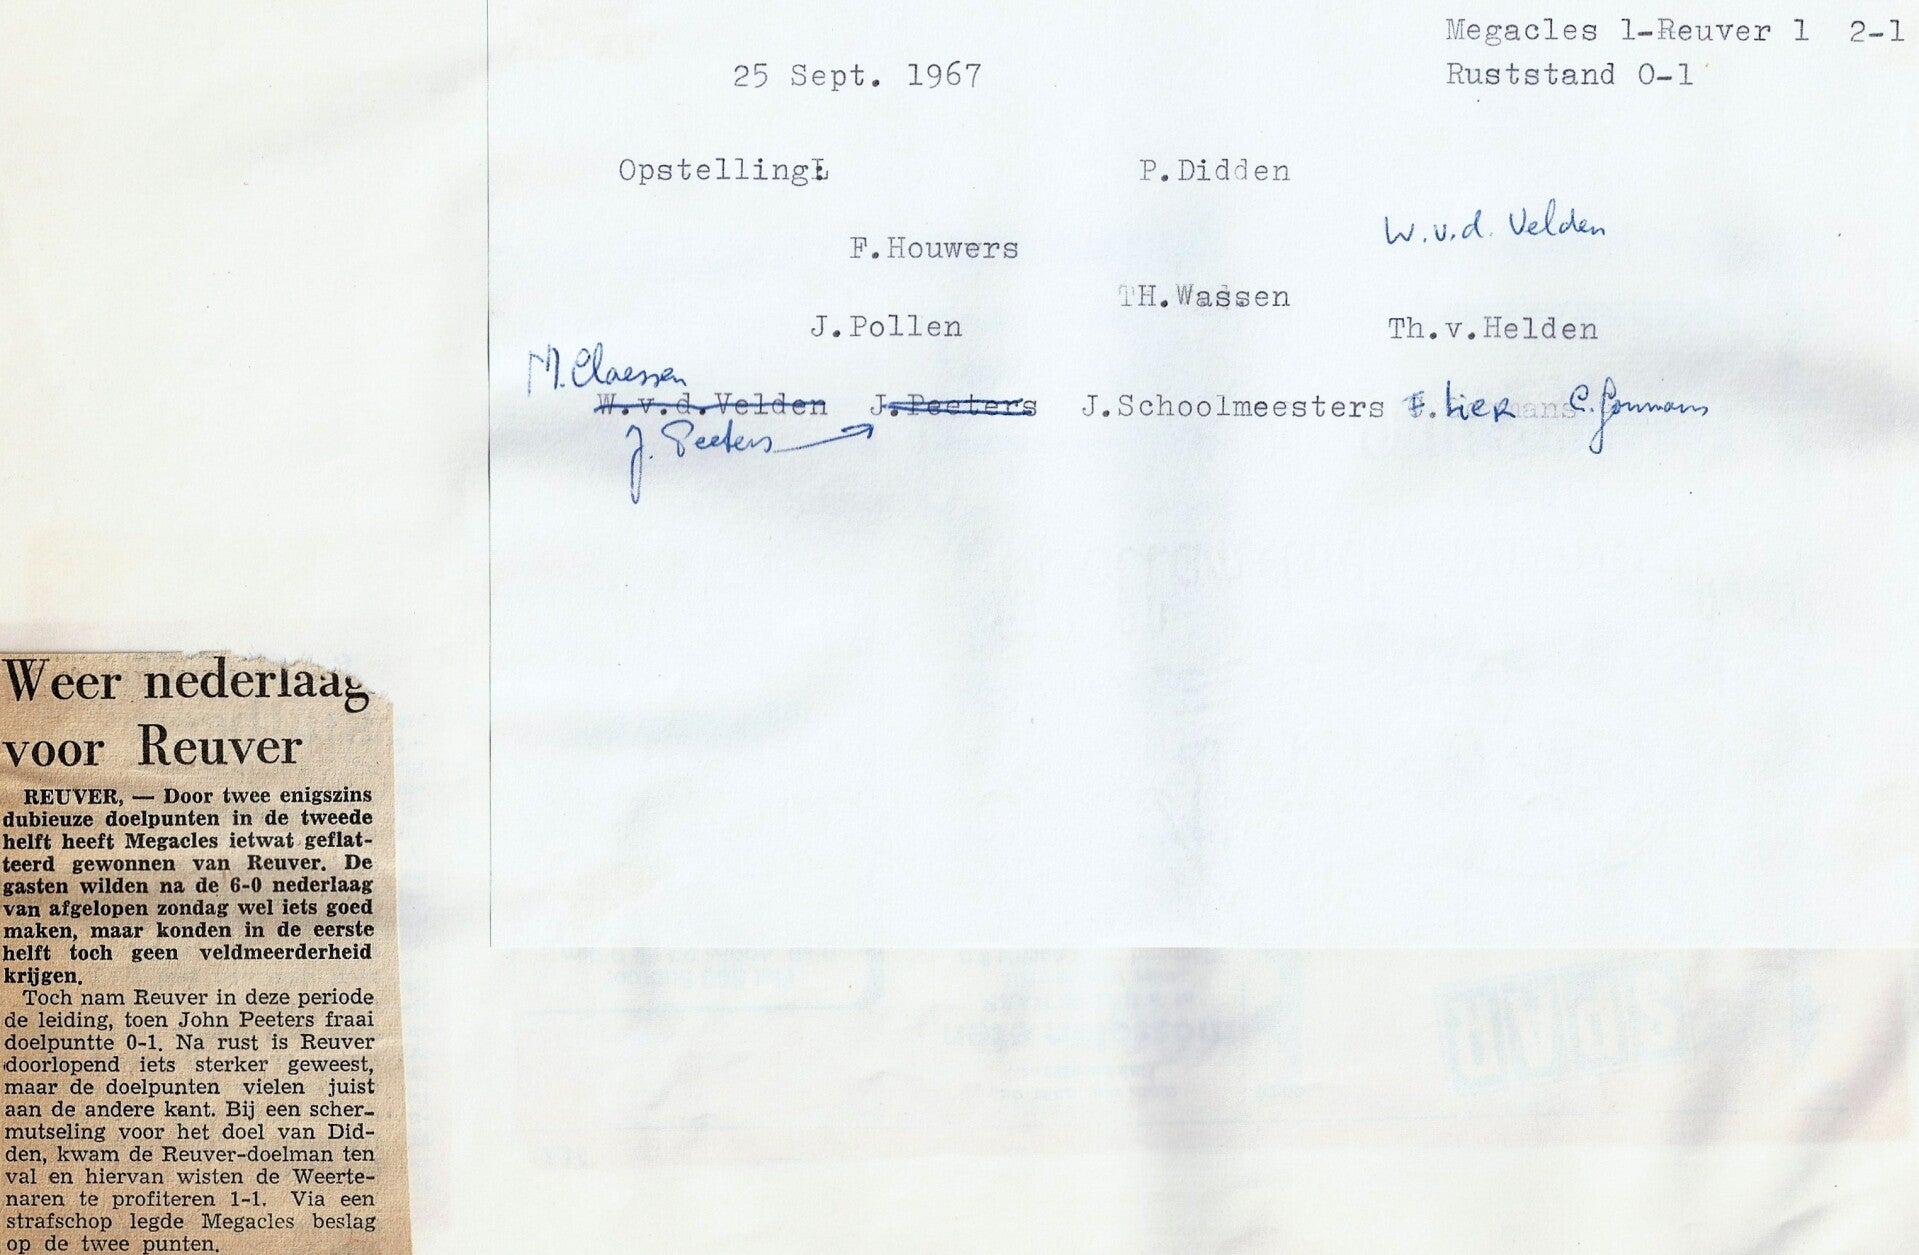 Megacles 1-Reuver 1 2-1
25 Sept. 1967
Ruststand 0-1
Opstelling:
P.Didden
W.v.d. Velden
F.Houwers
TH.Wassen
J.Pollen
Th.v.Helden
M. Claessen
W.v.d.Velden J.Peeters J.Schoolmeesters
J. Peeters
Weer nederlaag
voor Reuver
REUVER, — Door twee enigszins
dubieuze doelpunten in de tweede
helft heeft Megacles ietwat geflat-
teerd gewonnen van Reuver. De
gasten wilden na de 6-0 nederlaag
van afgelopen zondag wel iets goed
maken, maar konden in de eerste
helft toch geen veldmeerderheid
krijgen.
Toch nam Reuver in deze periode
de leiding, toen John Peeters fraai
doelpuntte 0-1. Na rust is Reuver
doorlopend iets sterker geweest,
maar de doelpunten vielen juist
aan de andere kant. Bij een scher-
mutseling voor het doel van Did-
den, kwam de Reuver-doelman ten
val en hiervan wisten de Weerte-
naren te profiteren 1-1. Via een
strafschop legde Megacles beslag
op de twee punten.